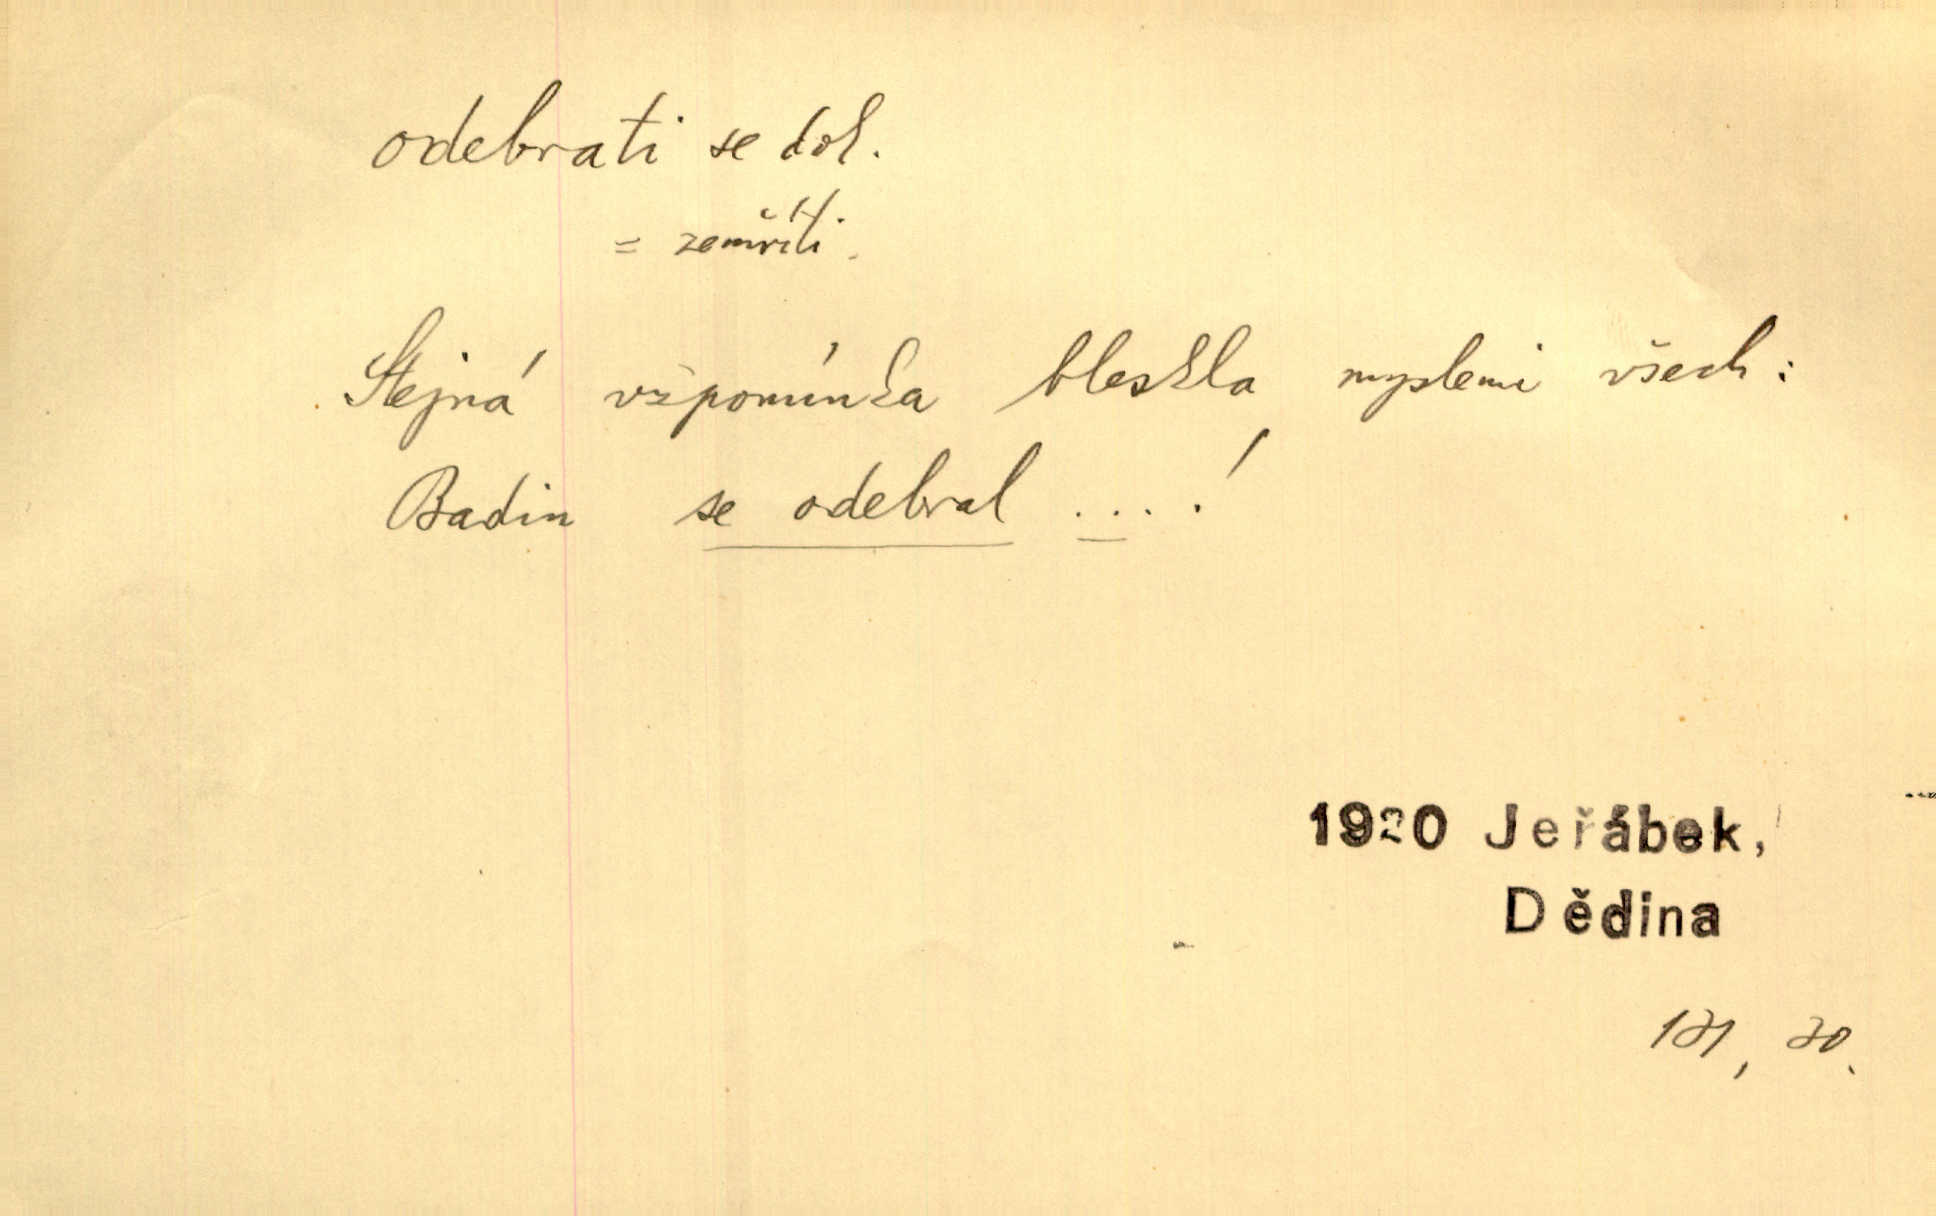 odebrati se dok.
= zemříti.
Stejná vzpomínka bleskla myslemi všech:
Badin se odebral ....!
1920 Jeřábek,
Dědina
121, 20.